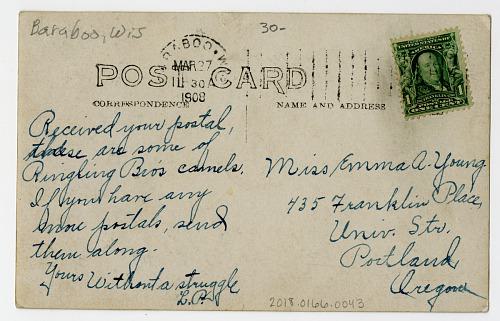 Baraboo, Wis
30-
BARABOO, W
MAR 27
30
1908
POST CARD
CORRESPONDENCE
NAME AND ADDRESS
UNITED STATES OF AMERICA
Received your postal,
these are some of
Ringling Bros camels.
If you have any
more postals, send
them along.
Yours Without a struggle
Miss Emma A. Young
435 Franklin Place
Univ. Str.
Portland
Oregon
2018.0166.0043